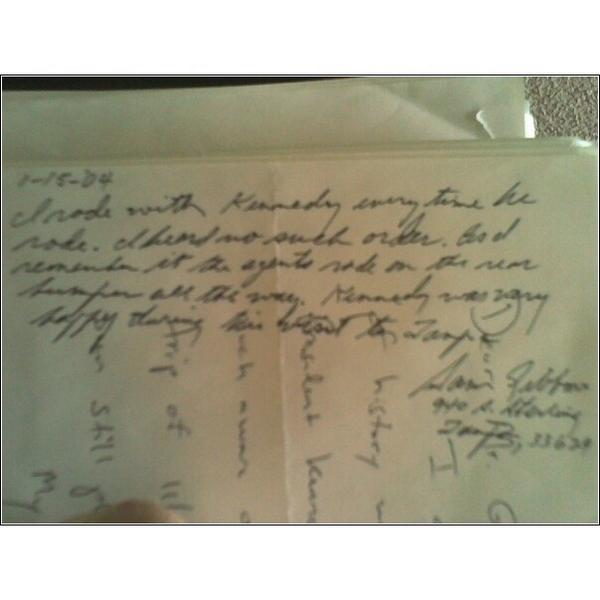 1-15-04
I rode with Kennedy every time he
rode. I heard no such order. As I
remember it the agents rode on the rear
bumper all the way. Kennedy was very
happy during his visit to Tampa.
Sam Gibbons
940 S. Sterling
Tampa, 33629
history
such a
trip of
still
My
I